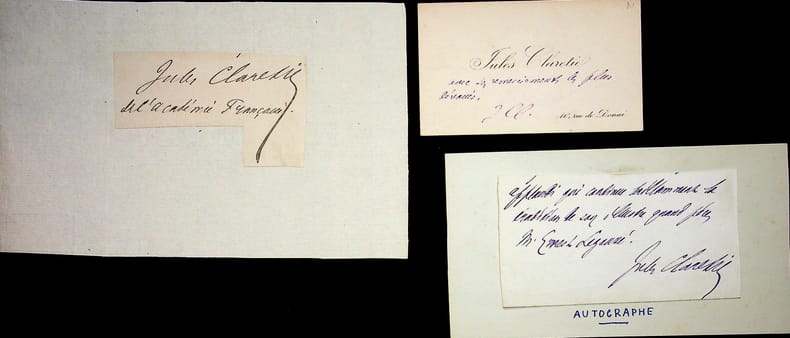 Jules Claretie
de l'Académie Française.
Jules Claretie
avec ses remerciements les plus
dévoués.
J Cl.
10, rue de Douai
applaudi qui continue brillamment la
tradition de son illustre grand père,
M. Ernest Legouvé.
Jules Claretie
AUTOGRAPHE